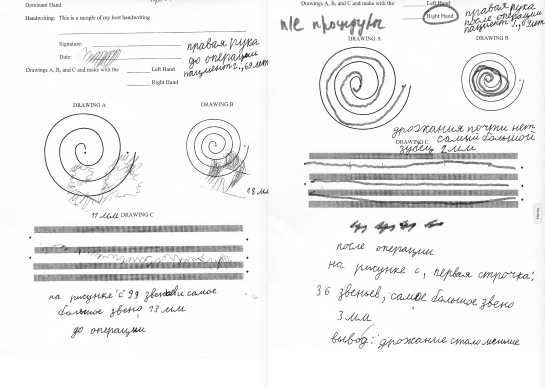 Dominant Hand
Handwriting: This is a sample of my best handwriting
Signature:
Date:
правая рука
до операции
пациент 2., 69 лет
Drawings A, B, and C and make with the Left Hand
Right Hand
DRAWING A
DRAWING B
11 мм
DRAWING C
на рисунке "с" 99 звеньев и самое
большое звено 13 мм
до операции
п/е процедуры
Drawings A, B, and C and make with the Left Hand
Right Hand
правая рука
после операции
DRAWING A
DRAWING B
дрожания почти нет
самый большой
зубец 2 мм
DRAWING C
после операции
на рисунке с, первая строчка:
36 звеньев, самое большое звено
3 мм
вывод: дрожание стало меньше